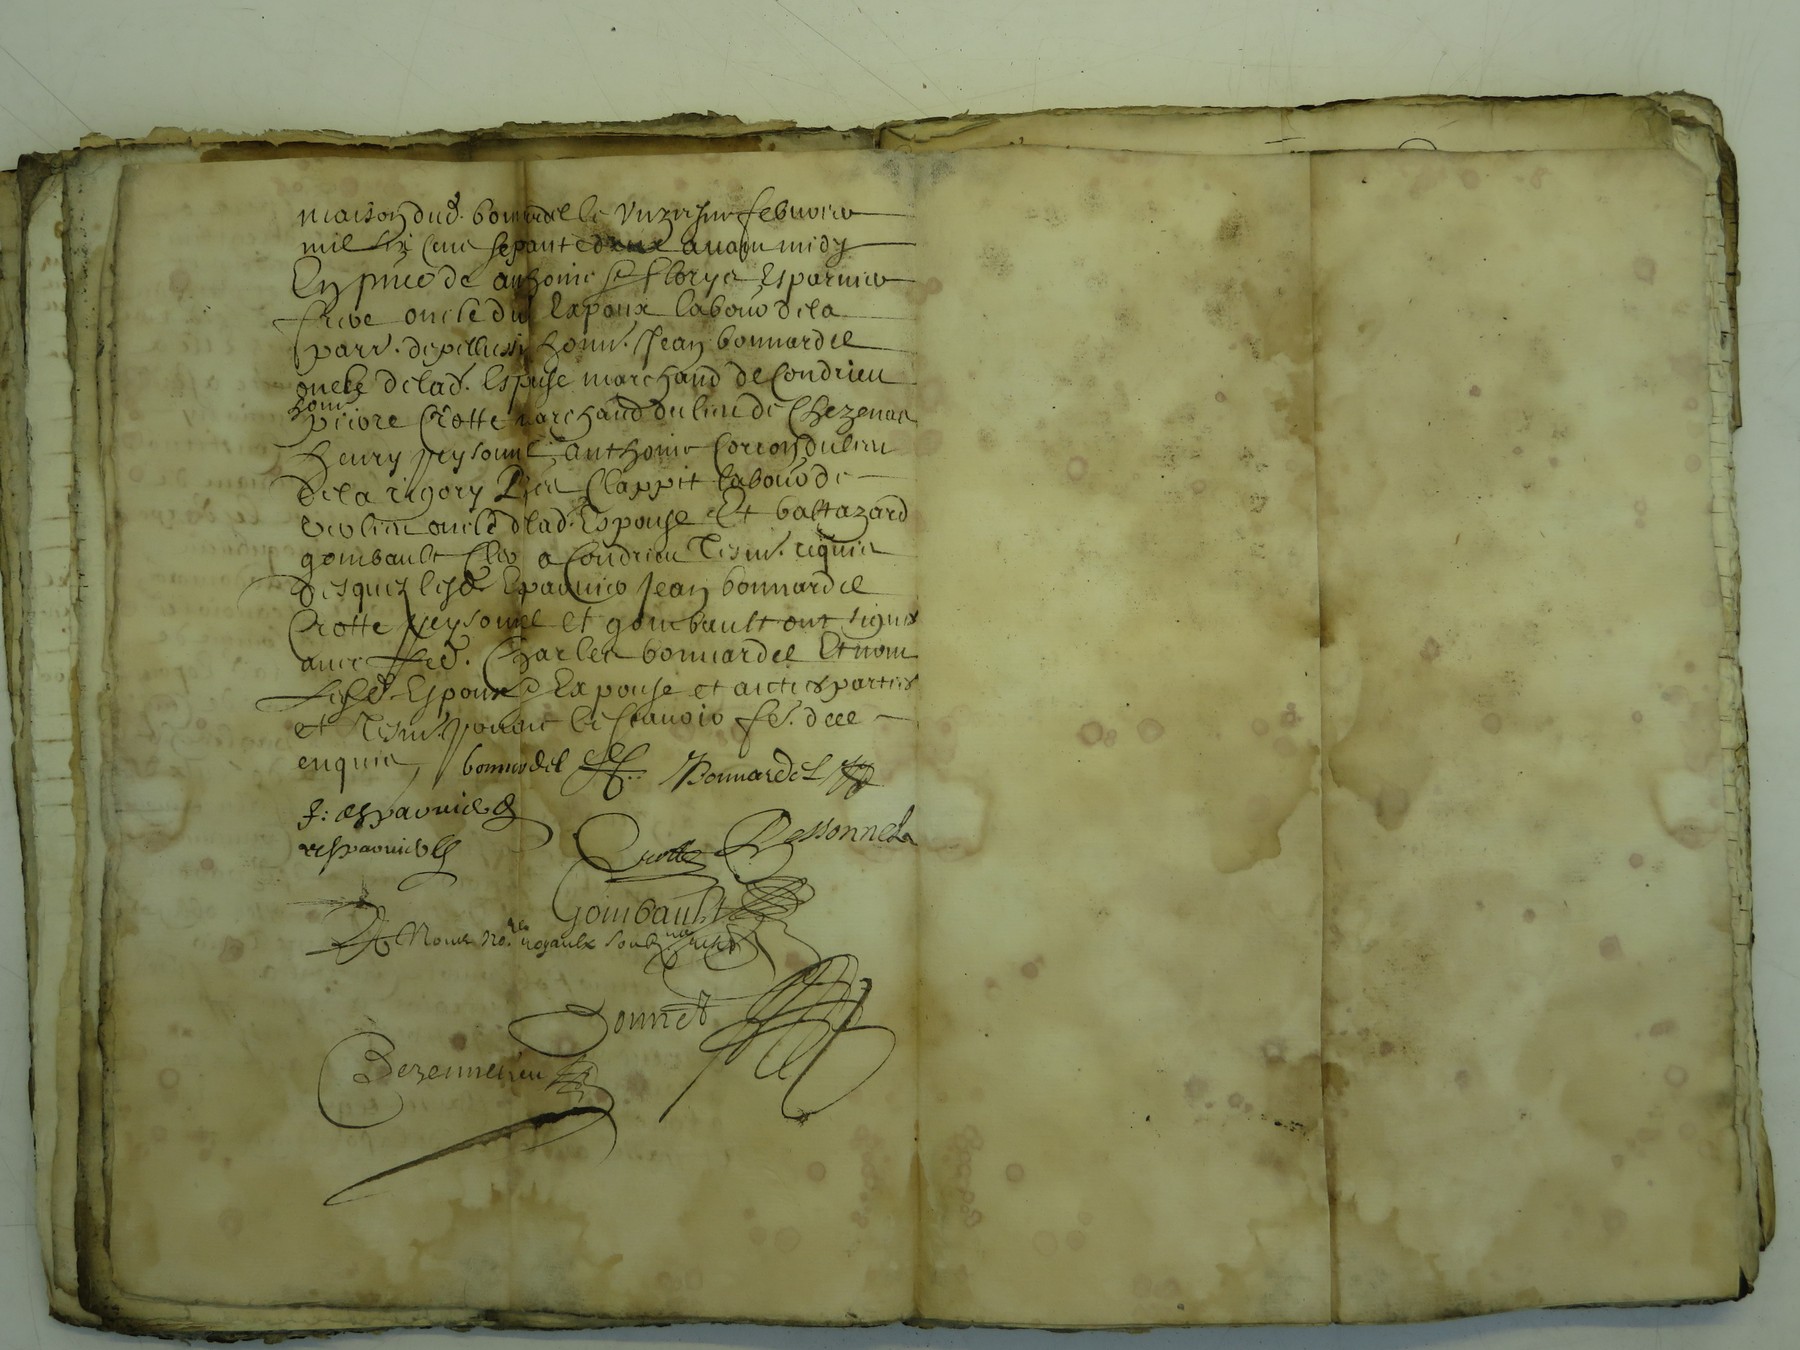 maison dud. bonnardel le unziesme febvrier
mil six cens septante deux avant midy
En pnce de anthoine et florys Esparvier
frere oncle dud Expoux labour de la
parr. de pellussin honn. Jean bonnardel
oncle de lad. Espouse marchand de Condrieu
honn
pierre Crotte marchand du lieu de Chezenas
henry peysonnel anthoine Corron du lieu
de la rigory Clappit labour de
oncle d lad. Espouse Et baltazard
gombault Clerc a Condrieu Tesm. requis
desquez lesd. Eparvier Jean bonnardel
Crotte peysonnel et gombault ont signes
avec led. Charles bonnardel Et non
lesd. Espoux Expouse et aultres parties
et Tesm. pour ne le scavoir fe. de ce
enquis bonnardel Bonnardel
f: esparvier
esparvier
Crotte Pessonnel
Gombault
Et Nous no.res royaulx soubznes
Donnet
Bezennesieu